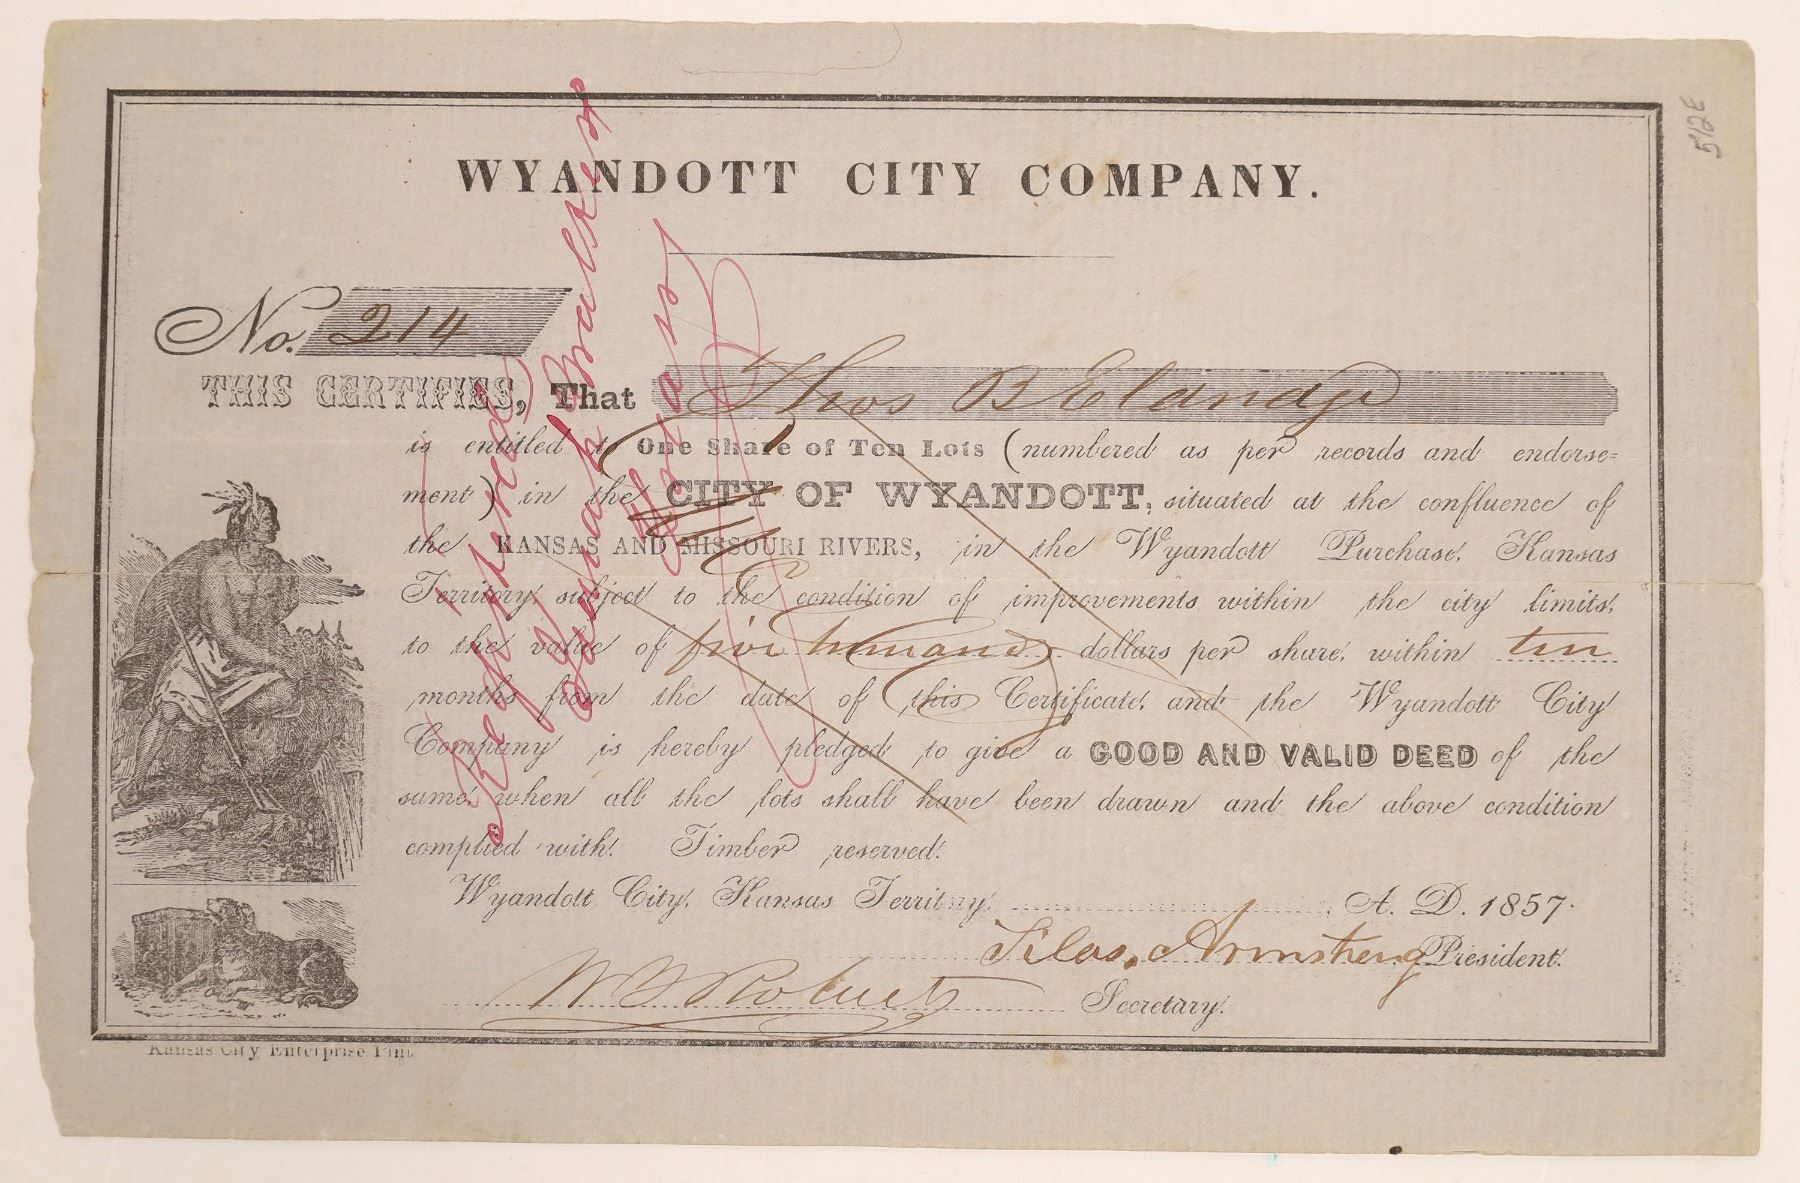 512E
WYANDOTT CITY COMPANY.
No. 214
THIS CERTIFIES, That Thos B Eldridge
is entitled to One Share of Ten Lots (numbered as per records and endorse-
ment) in the CITY OF WYANDOTT, situated at the confluence of
the KANSAS AND MISSOURI RIVERS, in the Wyandott Purchase, Kansas
Territory subject to the condition of improvements within the city limits,
to the value of five thousand dollars per share, within ten
months from the date of this Certificate, and the Wyandott City
Company is hereby pledged to give a GOOD AND VALID DEED of the
same, when all the lots shall have been drawn and the above condition
complied with. Timber reserved.
Wyandott City, Kansas Territory, A. D. 1857.
Silas Armstrong President.
W Roberts Secretary.
Kansas City Enterprise Print
Registered